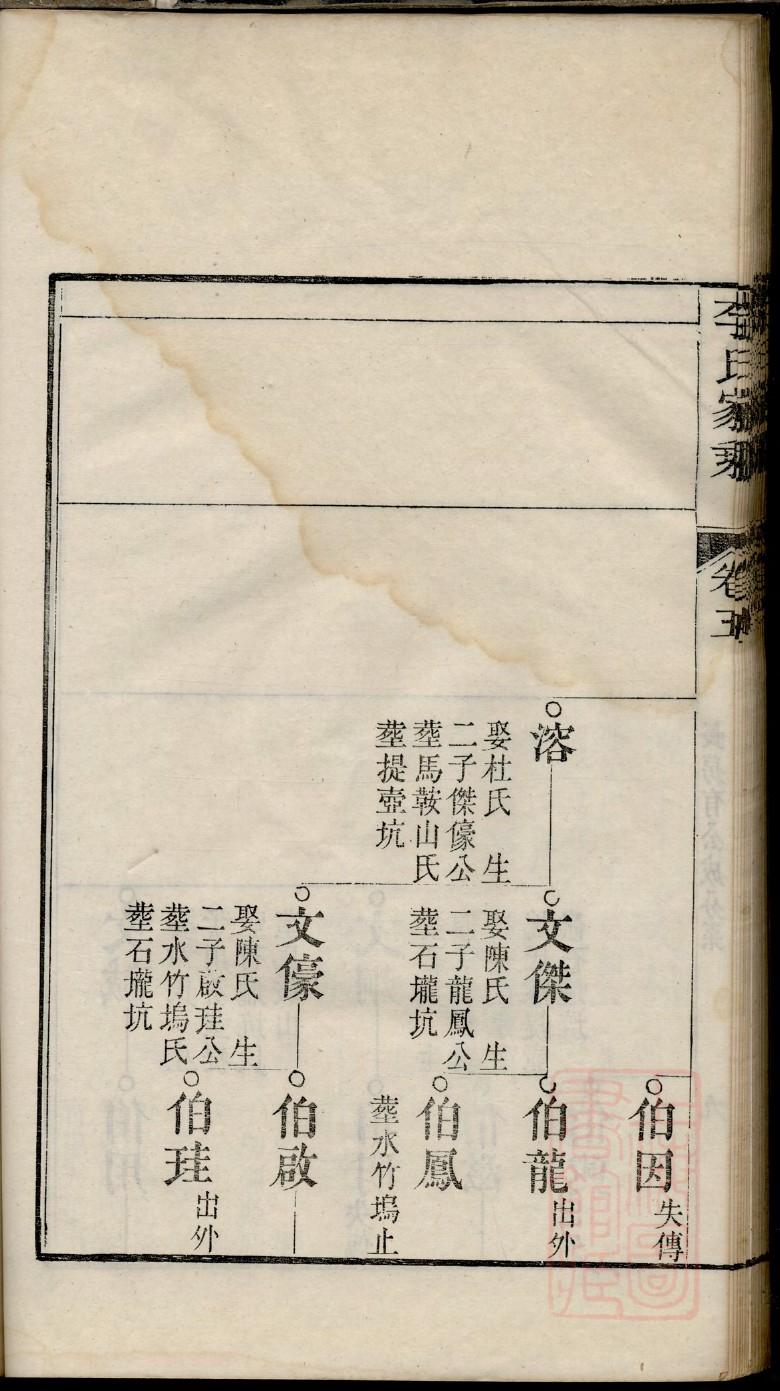 李氏家乘
卷五
溶
娶杜氏　生
二子傑儫公
塟馬鞍山氏
塟提壺坑
文傑
娶陳氏　生
二子龍鳳公
塟石瓏坑
文儫
娶陳氏　生
二子啟珪公
塟水竹塢氏
塟石瓏坑
伯因
失傳
伯龍
出外
伯鳳
塟水竹塢止
伯啟
伯珪
出外